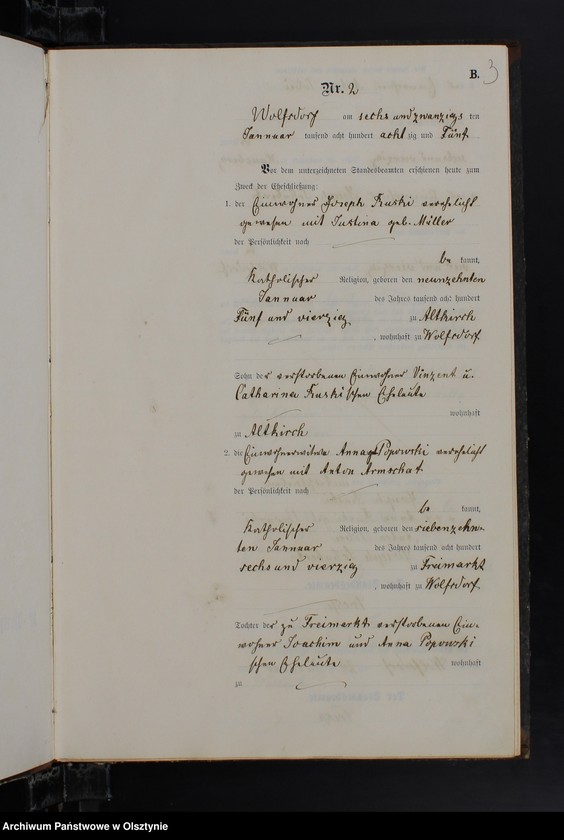 B.
3
Nr. 2
Wolfsdorf am sechs und zwanzigs ten
Januar tausend acht hundert acht zig und Fünf
Vor dem unterzeichneten Standesbeamten erschienen heute zum
Zweck der Eheschließung:
1. der Einwohner Joseph Kuski verehelicht
gewesen mit Justina geb. Müller
der Persönlichkeit nach
be kannt,
Katholischer Religion, geboren den neunzehnten
Januar des Jahres tausend acht hundert
Fünf und vierzig zu Altkirch
, wohnhaft zu Wolfsdorf
Sohn der verstorbenen Einwohner Vinzent u.
Catharina Kuski'schen Eheleute
wohnhaft
zu Altkirch
2. die Einwohnerwitwe Anna Popowski verehelicht
gewesen mit Anton Armschat
der Persönlichkeit nach
be kannt,
Katholischer Religion, geboren den siebenzehn-
ten Januar des Jahres tausend acht hundert
sechs und vierzig zu Freimarkt
, wohnhaft zu Wolfsdorf
Tochter der zu Freimarkt verstorbenen Ein-
wohner Joachim und Anna Popowski
schen Eheleute wohnhaft
zu
Archiwum Państwowe w Olsztynie